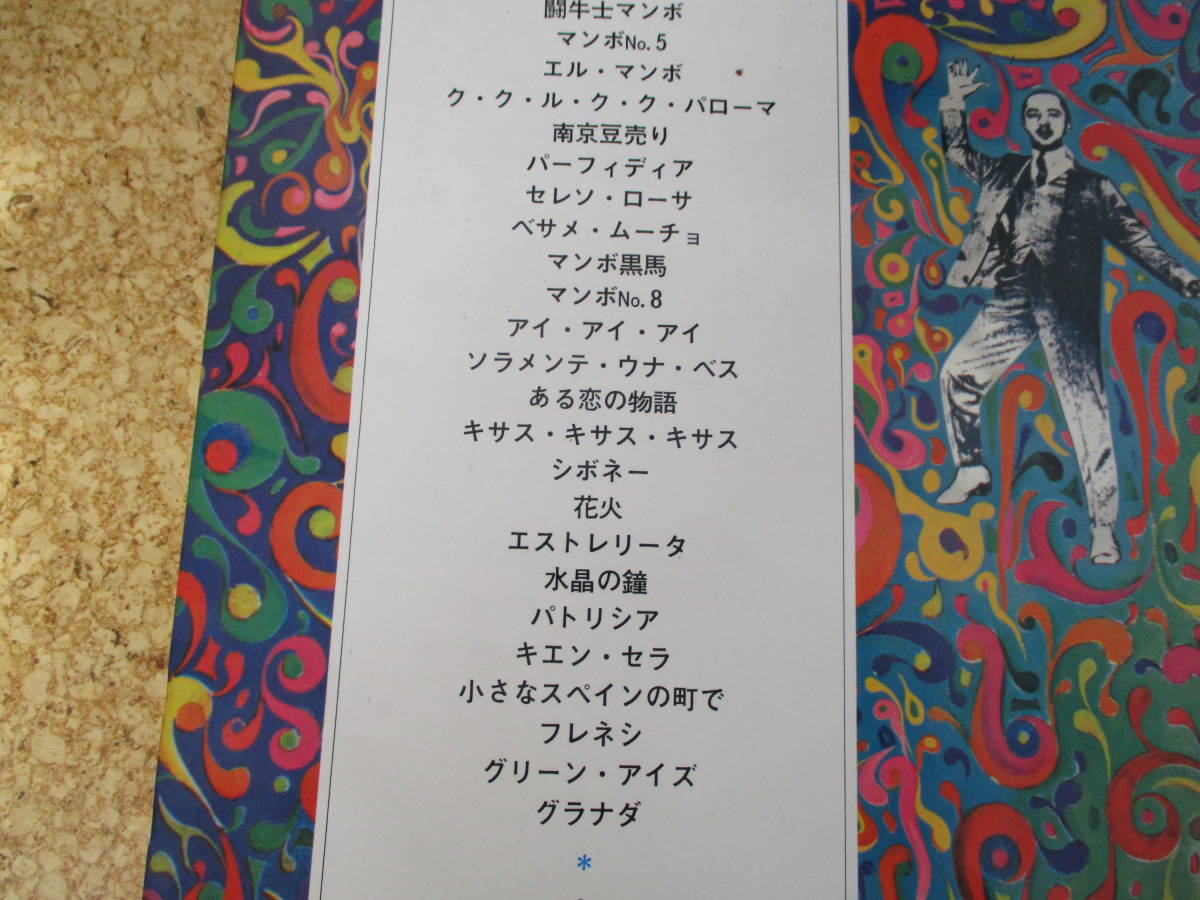 闘牛士マンボ
マンボNo.5
エル・マンボ
ク・ク・ル・ク・ク・パローマ
南京豆売り
パーフィディア
セレソ・ローサ
ベサメ・ムーチョ
マンボ黒馬
マンボNo.8
アイ・アイ・アイ
ソラメンテ・ウナ・ベス
ある恋の物語
キサス・キサス・キサス
シボネー
花火
エストレリータ
水晶の鐘
パトリシア
キエン・セラ
小さなスペインの町で
フレネシ
グリーン・アイズ
グラナダ
*